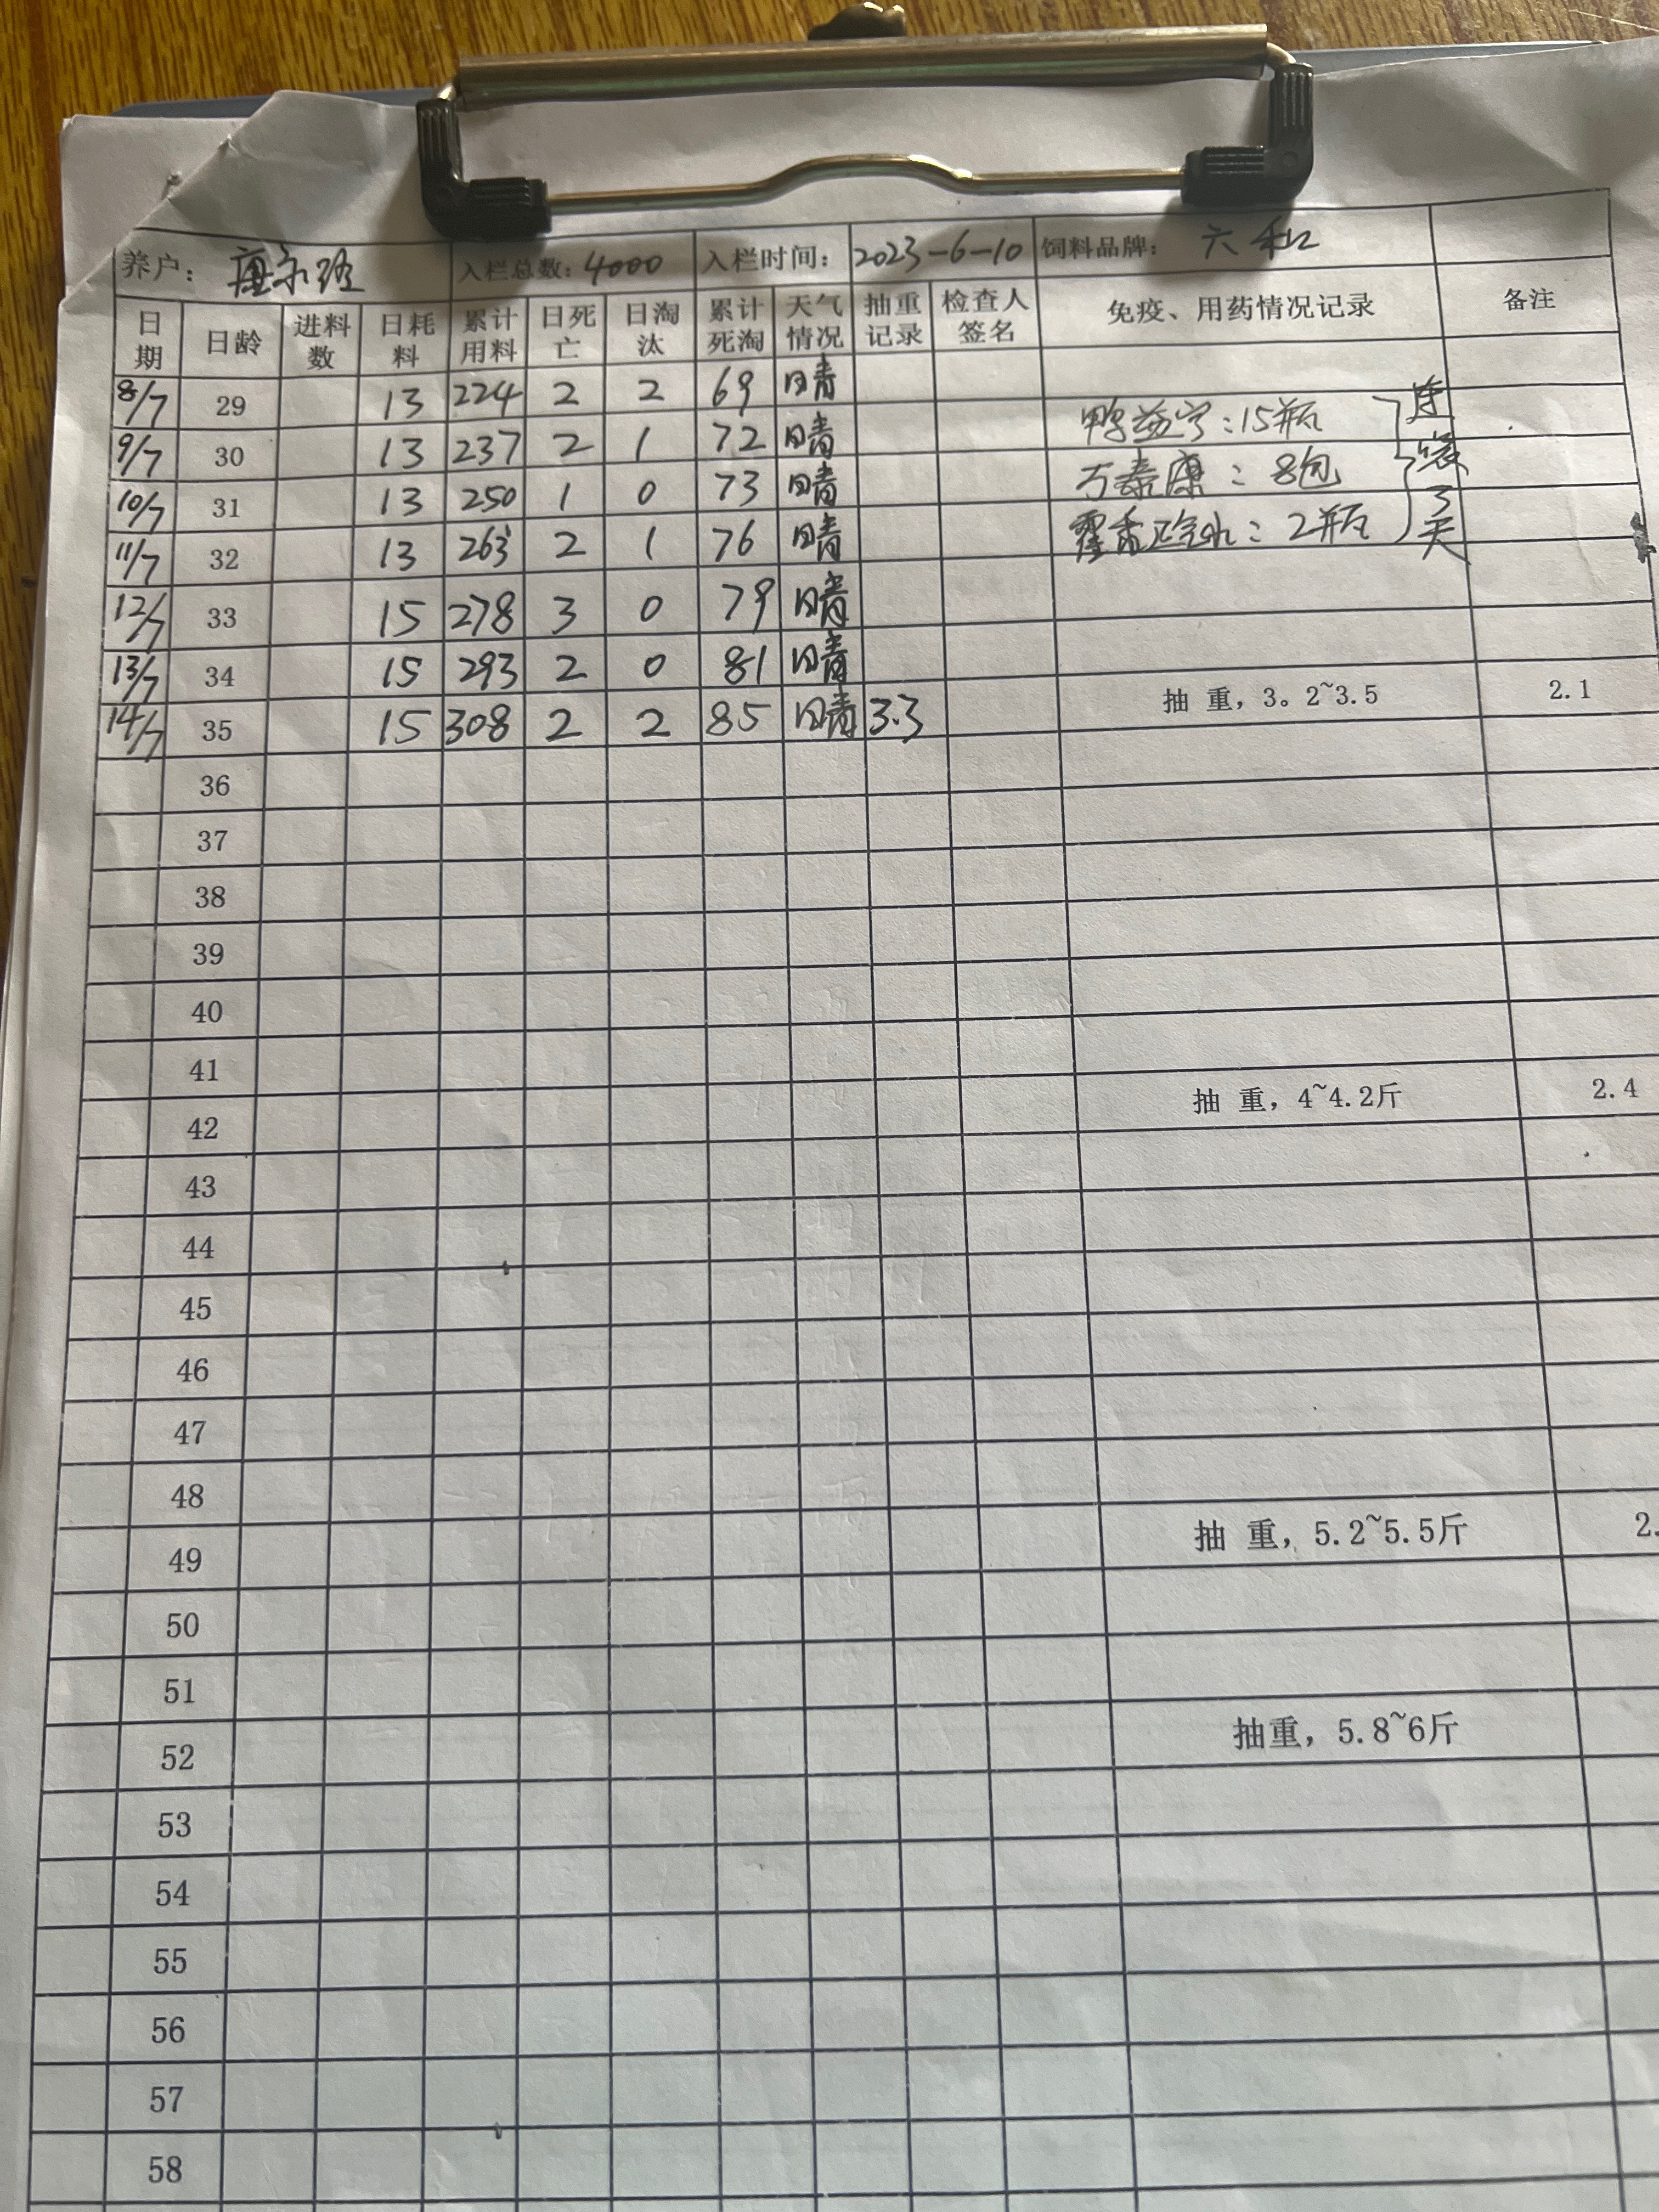 养户： 入栏总数：4000 入栏时间：2023-6-10 饲料品牌：六和
日期 日龄 进料数 日耗料 累计用料 日死亡 日淘汰 累计死淘 天气情况 抽重记录 检查人签名 免疫、用药情况记录 备注
8/7 29 13 224 2 2 69 晴
9/7 30 13 237 2 1 72 晴 鸭益宁：15瓶 连
10/7 31 13 250 1 0 73 晴 万泰康：8包
11/7 32 13 263 2 1 76 晴 霍香正气水：2瓶 3天
12/7 33 15 278 3 0 79 晴
13/7 34 15 293 2 0 81 晴
14/7 35 15 308 2 2 85 晴 3.3 抽 重，3。2~3.5 2.1
36
37
38
39
40
41
42 抽 重，4~4.2斤 2.4
43
44
45
46
47
48
49 抽 重，5.2~5.5斤 2.
50
51
52 抽重，5.8~6斤
53
54
55
56
57
58